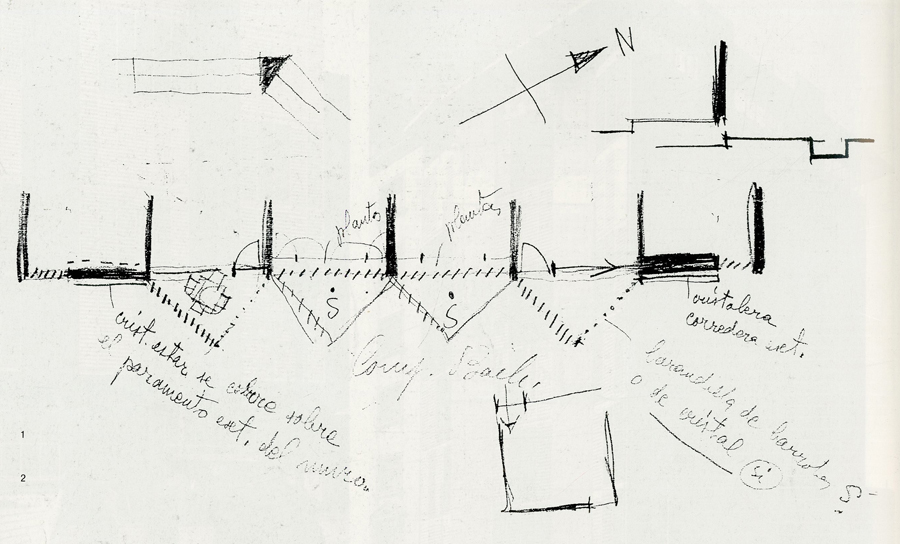 N
plantas
plantas
S
S
crist. estar se corre sobre
el paramento ext. del muro.
Comp. Bailu.
cristalera
corredera ext.
barandilla de barrotes S.
o de cristal
si
1
2